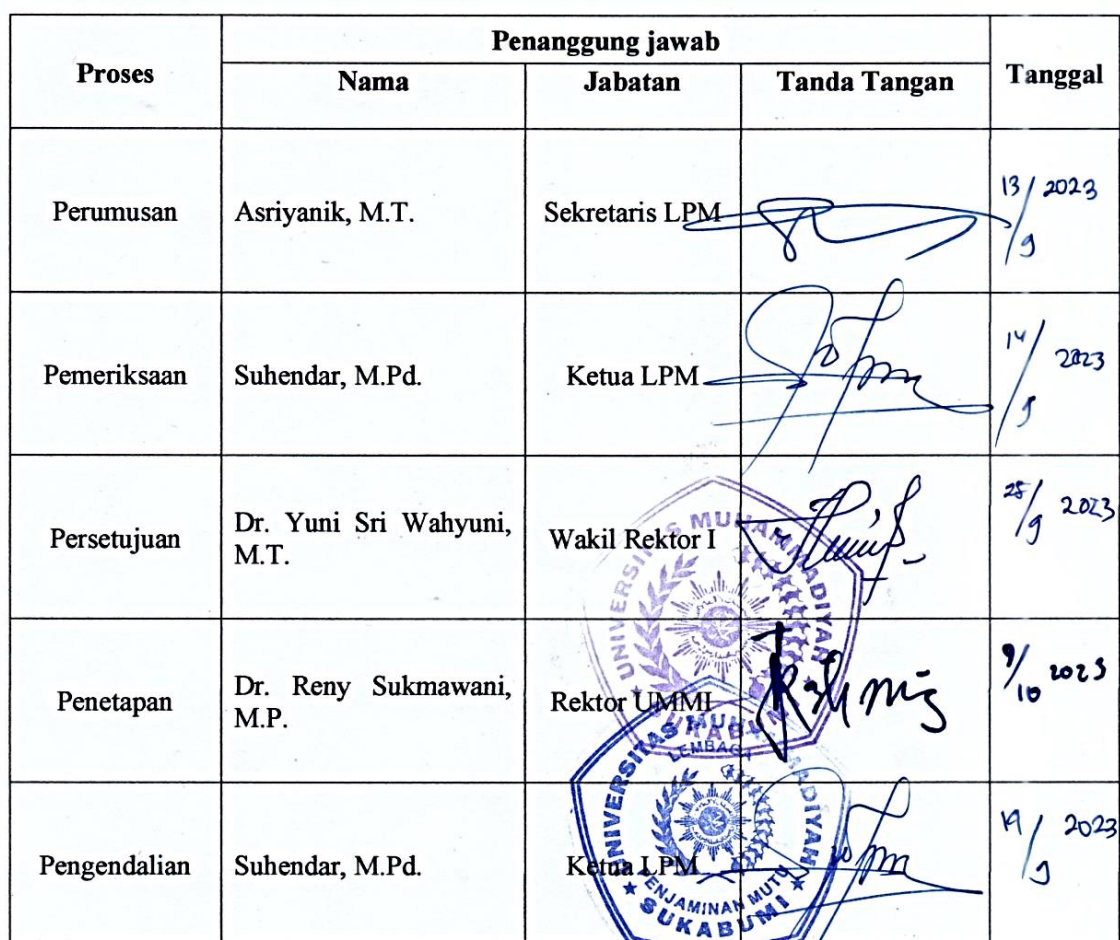 Proses
Penanggung jawab
Tanggal
Nama
Jabatan
Tanda Tangan
Perumusan
Asriyanik, M.T.
Sekretaris LPM
13/9 2023
Pemeriksaan
Suhendar, M.Pd.
Ketua LPM
14/9 2023
Persetujuan
Dr. Yuni Sri Wahyuni,
M.T.
Wakil Rektor I
25/9 2023
UNIVERSITAS MUHAMMADIYAH
SUKABUMI
Penetapan
Dr. Reny Sukmawani,
M.P.
Rektor UMMI
9/10 2023
Pengendalian
Suhendar, M.Pd.
Ketua LPM
19/9 2023
UNIVERSITAS MUHAMMADIYAH
LEMBAGA
PENJAMINAN MUTU
SUKABUMI